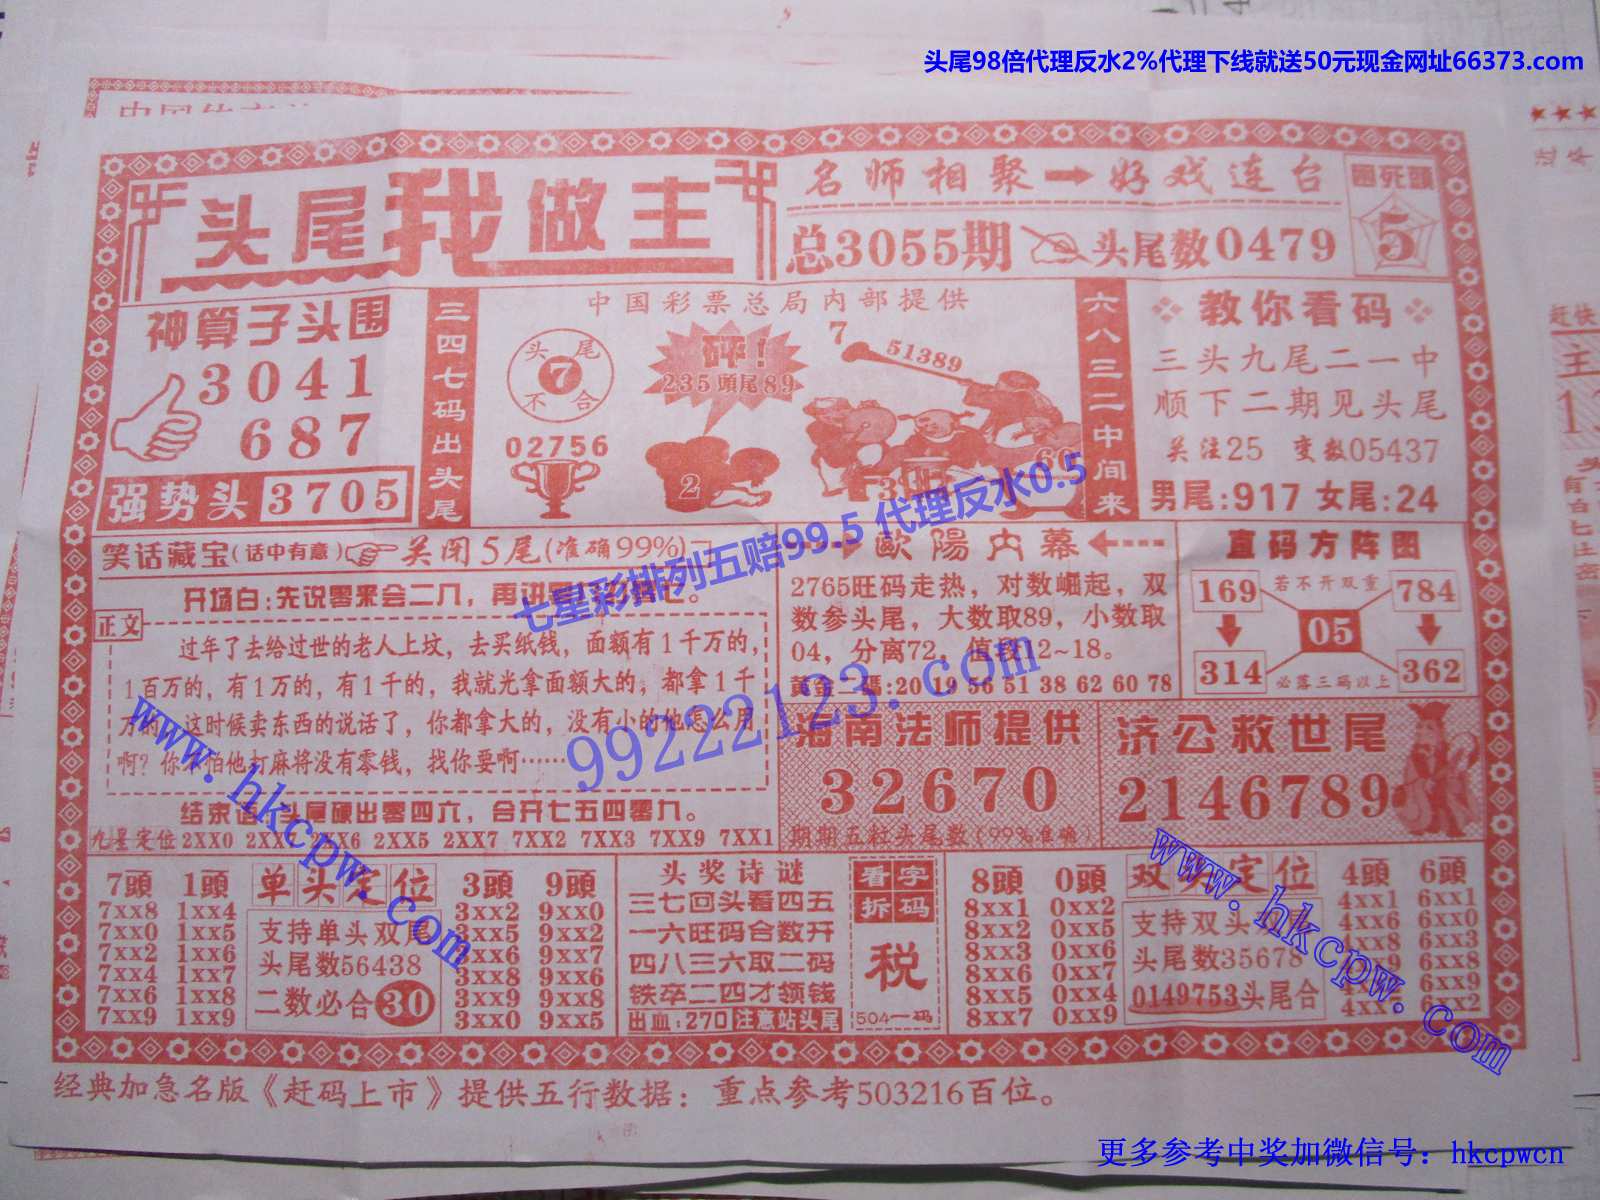 头尾98倍代理反水2%代理下线就送50元现金网址66373.com
头尾我做主
名师相聚 好戏连台
总3055期 头尾数0479
圈死頭
5
神算子头围
3041
687
强势头 3705
三四七码出头尾
中国彩票总局内部提供
头尾
7
不合
02756
砰!
235頭尾89
2
7
51389
六八三二中间来
教你看码
三头九尾二一中
顺下二期见头尾
关注25 变数05437
男尾:917 女尾:24
笑话藏宝(话中有意) 关闭5尾(准确99%)
开场白:先说零来会二八,再讲
正文
过年了去给过世的老人上坟，去买纸钱，面额有1千万的，
1百万的，有1万的，有1千的，我就光拿面额大的，都拿1千
万的，这时候卖东西的说话了，你都拿大的，没有小的他怎么用
啊？你不怕他打麻将没有零钱，找你要啊……
头尾硬出零四六，合开七五四零九。
九星定位 2XX0 2XX6 2XX5 2XX7 7XX2 7XX3 7XX9 7XX1
歐陽内幕
2765旺码走热，对数崛起，双
数参头尾，大数取89，小数取
04，分离72，值段12~18。
黄金二碼:20 19 56 51 38 62 60 78
直码方阵图
169 若不开双重 784
05
314 必落三码以上 362
海南法师提供
32670
期期五粒头尾数(99%准确)
济公救世尾
2146789
7頭
7xx8
7xx0
7xx2
7xx4
7xx6
7xx9
1頭
1xx4
1xx5
1xx6
1xx7
1xx8
1xx9
单头定位
支持单头双尾
头尾数56438
二数必合30
3頭
3xx2
3xx5
3xx6
3xx8
3xx9
3xx0
9頭
9xx0
9xx2
9xx7
9xx6
9xx8
9xx5
头奖诗谜
三七回头看四五
一六旺码合数开
四八三六取二码
铁卒二四才领钱
出血:270 注意站头尾
看字拆码
税
504一码
8頭
8xx1
8xx2
8xx3
8xx6
8xx5
8xx7
0頭
0xx2
0xx5
0xx6
0xx7
0xx4
0xx9
双头定位
支持双头
头尾数35678
0149753头尾合
4頭
4xx1
4xx6
6頭
6xx1
6xx0
6xx3
6xx8
6xx9
6xx2
经典加急名版《赶码上市》提供五行数据：重点参考503216百位。
七星彩排列五赔99.5 代理反水0.5
99222123.com
www.hkcpw.com
www.hkcpw.com
更多参考中奖加微信号：hkcpwcn